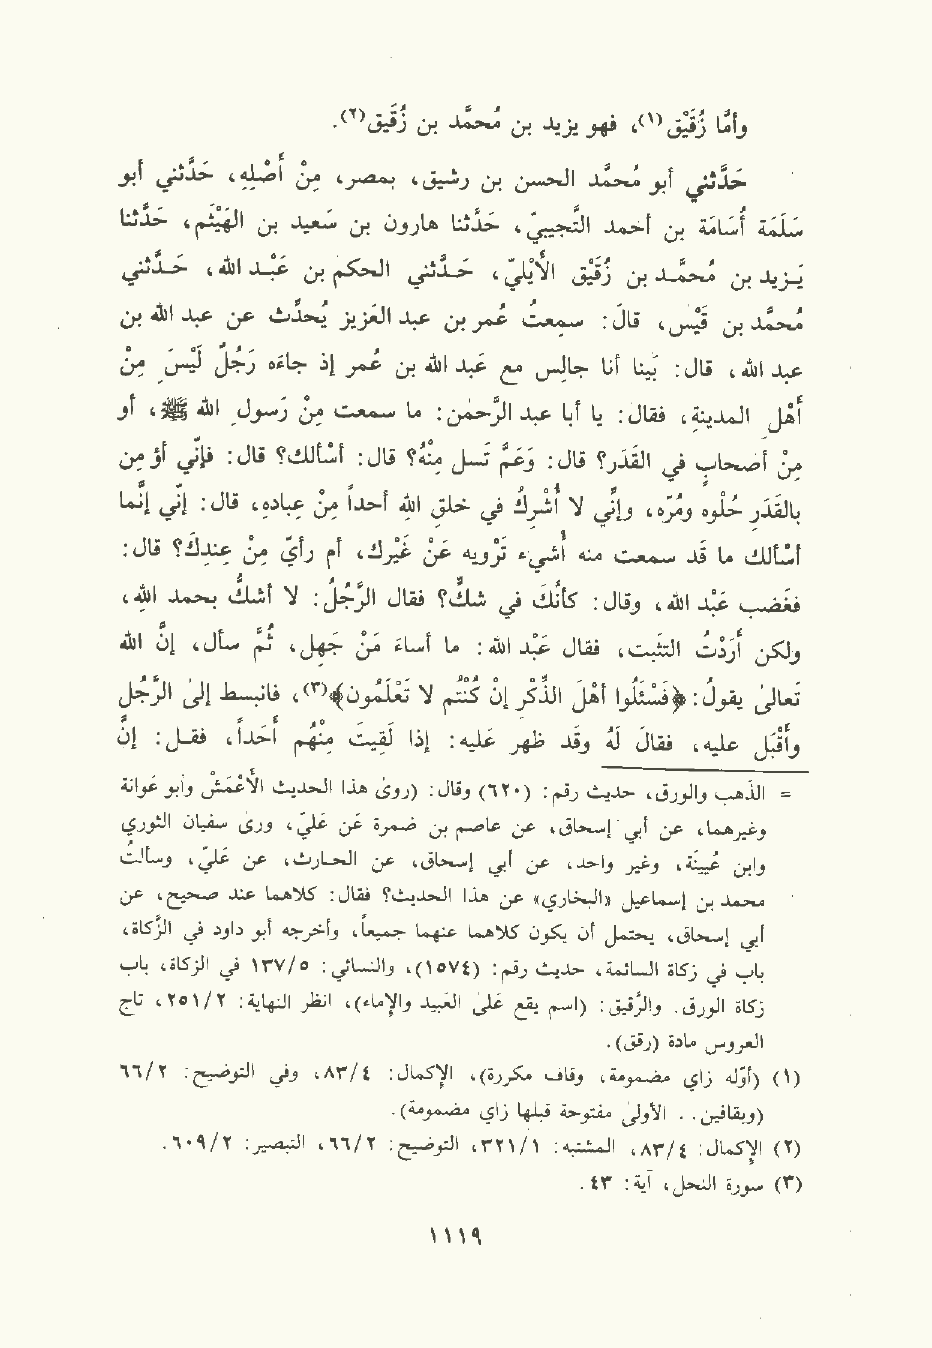 وأمَّا زُقَيْق(١)، فهو يزيد بن مُحمَّد بن زُقَيق(٢).
حَدَّثني أبو مُحمَّد الحسن بن رشيق، بمصر، مِنْ أَصْلِهِ، حَدَّثني أبو
سَلَمَة أُسَامَة بن أحمد التُّجيبيّ، حَدَّثنا هارون بن سَعيد بن الهَيْثَم، حَدَّثنا
يَـزيد بن مُحمَّـد بن زُقَيْق الأَيْليّ، حَـدَّثني الحكم بن عَبْـد الله، حَـدَّثني
مُحمَّد بن قَيْس، قالَ: سمعتُ عُمر بن عبد العَزيز يُحدِّث عن عبد الله بن
عبد الله، قال: بَيْنا أنا جالِس مع عَبد الله بن عُمر إذ جاءَه رَجُلٌ لَيْسَ مِنْ
أَهْلِ المدينةِ، فقال: يا أبا عبد الرَّحمن: ما سمعت مِنْ رَسولِ الله ﷺ، أو
مِنْ أصْحاب في القَدَر؟ قال: وَعَمَّ تَسل مِنْهُ؟ قال: أسْألك؟ قال: فإنِّي أؤمِن
بالقَدَر حُلْوه ومُرّه، وإنِّي لا أُشْرِكُ في خلقِ الله أحداً مِنْ عبادِه، قال: إنِّي إنَّما
أسْألك ما قَد سمعت منه أشيء تَرْويه عَنْ غَيْرك، أم رأيٌ مِنْ عِندِكَ؟ قال:
فغَضب عَبْد الله، وقال: كأنَّكَ في شكٍّ؟ فقال الرَّجُلُ: لا أشكُّ بحمد الله،
ولكن أَرَدْتُ التثبّت، فقال عَبْد الله: ما أساءَ مَنْ جَهِل، ثُمَّ سأل، إنَّ الله
تَعالىٰ يقولُ: ﴿فَسْئَلُوا أهْلَ الذِّكْر إنْ كُنْتُم لا تَعْلَمُون﴾(٣)، فانبسط إلىٰ الرَّجل
وأَقْبَل عليه، فقالَ لَهُ وقَد ظهر عليه: إذا لَقِيتَ مِنْهُم أَحَداً، فقـل: إنَّ
= الذهب والورق، حديث رقم: (٦٢٠) وقال: (روىٰ هذا الحديث الأعْمَشْ وأبو عَوانة
وغيرهما، عن أبي إسحاق، عن عاصم بن ضمرة عَن عَليّ، وروىٰ سفيان الثوري
وابن عُيَيْنَة، وغير واحد، عن أبي إسحٰق، عن الحـارث، عن عَليّ، وسألتُ
محمد بن إسماعيل «البخاري» عن هذا الحديث؟ فقال: كلاهما عند صحيح، عن
أبي إسحاق، يحتمل أن يكون كلاهما عنهما جميعاً، وأخرجه أبو داود في الزكاة،
باب في زكاة السائمة، حديث رقم: (١٥٧٤)، والنسائي: ١٣٧/٥ في الزكاة، باب
زكاة الورق. والرَّقيق: (اسم يقع علىٰ العَبيد والإماء)، انظر النهاية: ٢٥١/٢، تاج
العروس مادة (رقق).
(١) (أوّله زاي مضمومة، وقاف مكررة)، الإكمال: ٨٣/٤، وفي التوضيح: ٦٦/٢
(وبقافين.. الأولىٰ مفتوحة قبلها زاي مضمومة).
(٢) الإكمال: ٨٣/٤، المشتبه: ٣٢١/١، التوضيح: ٦٦/٢، التبصير: ٦٠٩/٢.
(٣) سورة النحل، آية: ٤٣.
١١١٩